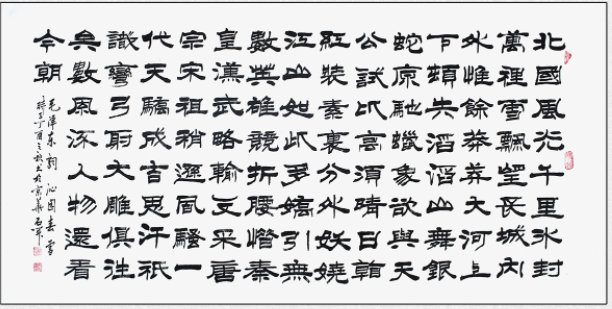 北國風光千里冰封
萬裡雪飄望長城內
外惟餘莽莽大河上
下頓失滔滔山舞銀
蛇原馳蠟象欲與天
公試比高須晴日看
紅裝素裹分外妖嬈
江山如此多嬌引無
數英雄競折腰惜秦
皇漢武略輸文采唐
宗宋祖稍遜風騷一
代天驕成吉思汗祇
識彎弓射大雕俱往
矣數風流人物還看
今朝
毛澤東詞 沁園春 雪
丁酉之秋書於京華